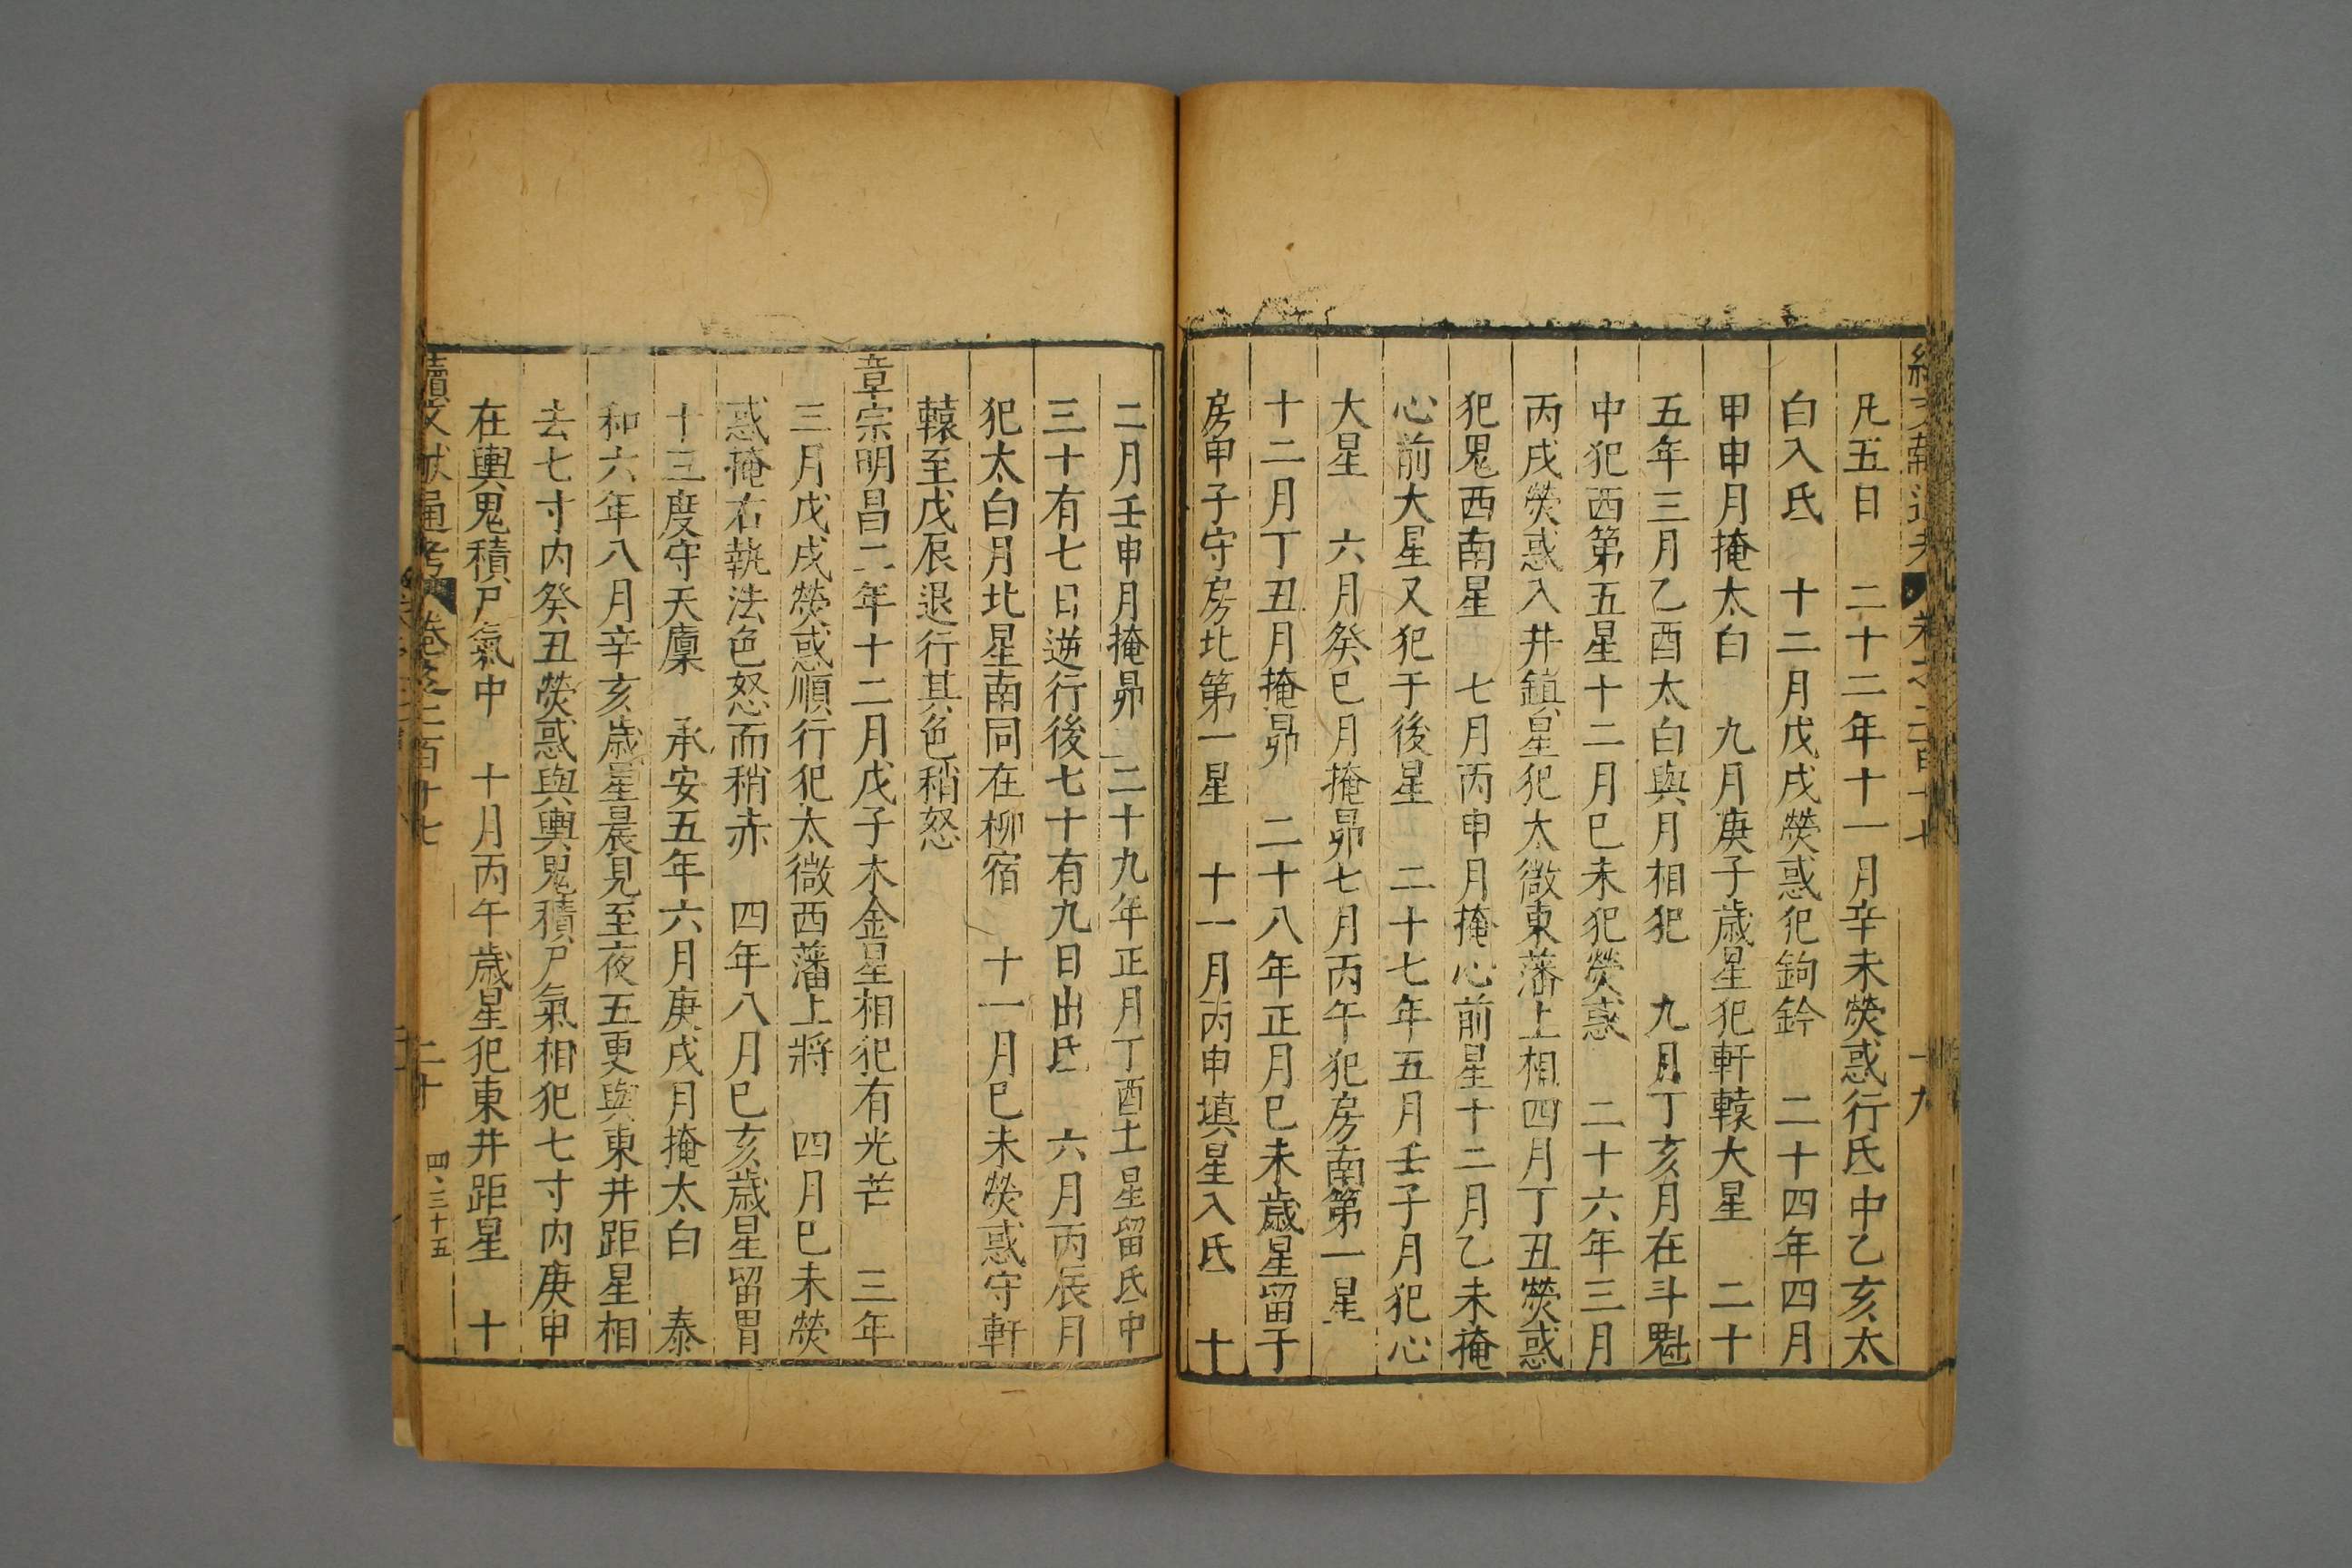 凡五日　二十二年十一月辛未熒惑行氐中乙亥太
白入氐　十二月戊戌熒惑犯鉤鈐　二十四年四月
甲申月掩太白　九月庚子歲星犯軒轅大星　二十
五年三月乙酉太白與月相犯　九月丁亥月在斗魁
中犯西第五星十二月巳未犯熒惑　二十六年三月
丙戌熒惑入井鎮星犯太微東藩上相四月丁丑熒惑
犯鬼西南星　七月丙申月掩心前星十二月乙未掩
心前大星又犯于後星　二十七年五月壬子月犯心
大星　六月癸巳月掩昴七月丙午犯房南第一星
十二月丁丑月掩昴　二十八年正月巳未歲星留于
房甲子守房北第一星　十一月丙申填星入氐　十
二月壬申月掩昴　二十九年正月丁酉土星留氐中
三十有七日逆行後七十有九日出氐　六月丙辰月
犯太白月北星南同在柳宿　十一月巳未熒惑守軒
轅至戊辰退行其色稍怒
章宗明昌二年十二月戊子木金星相犯有光芒　三年
三月戊戌熒惑順行犯太微西藩上將　四月巳未熒
惑掩右執法色怒而稍赤　四年八月巳亥歲星留胃
十三度守天廩　承安五年六月庚戌月掩太白　泰
和六年八月辛亥歲星晨見至夜五更與東井距星相
去七寸內癸丑熒惑與輿鬼積尸氣相犯七寸內庚申
在輿鬼積尸氣中　十月丙午歲星犯東井距星　十
續文獻通考　卷之二百十七　二十　四、三十五